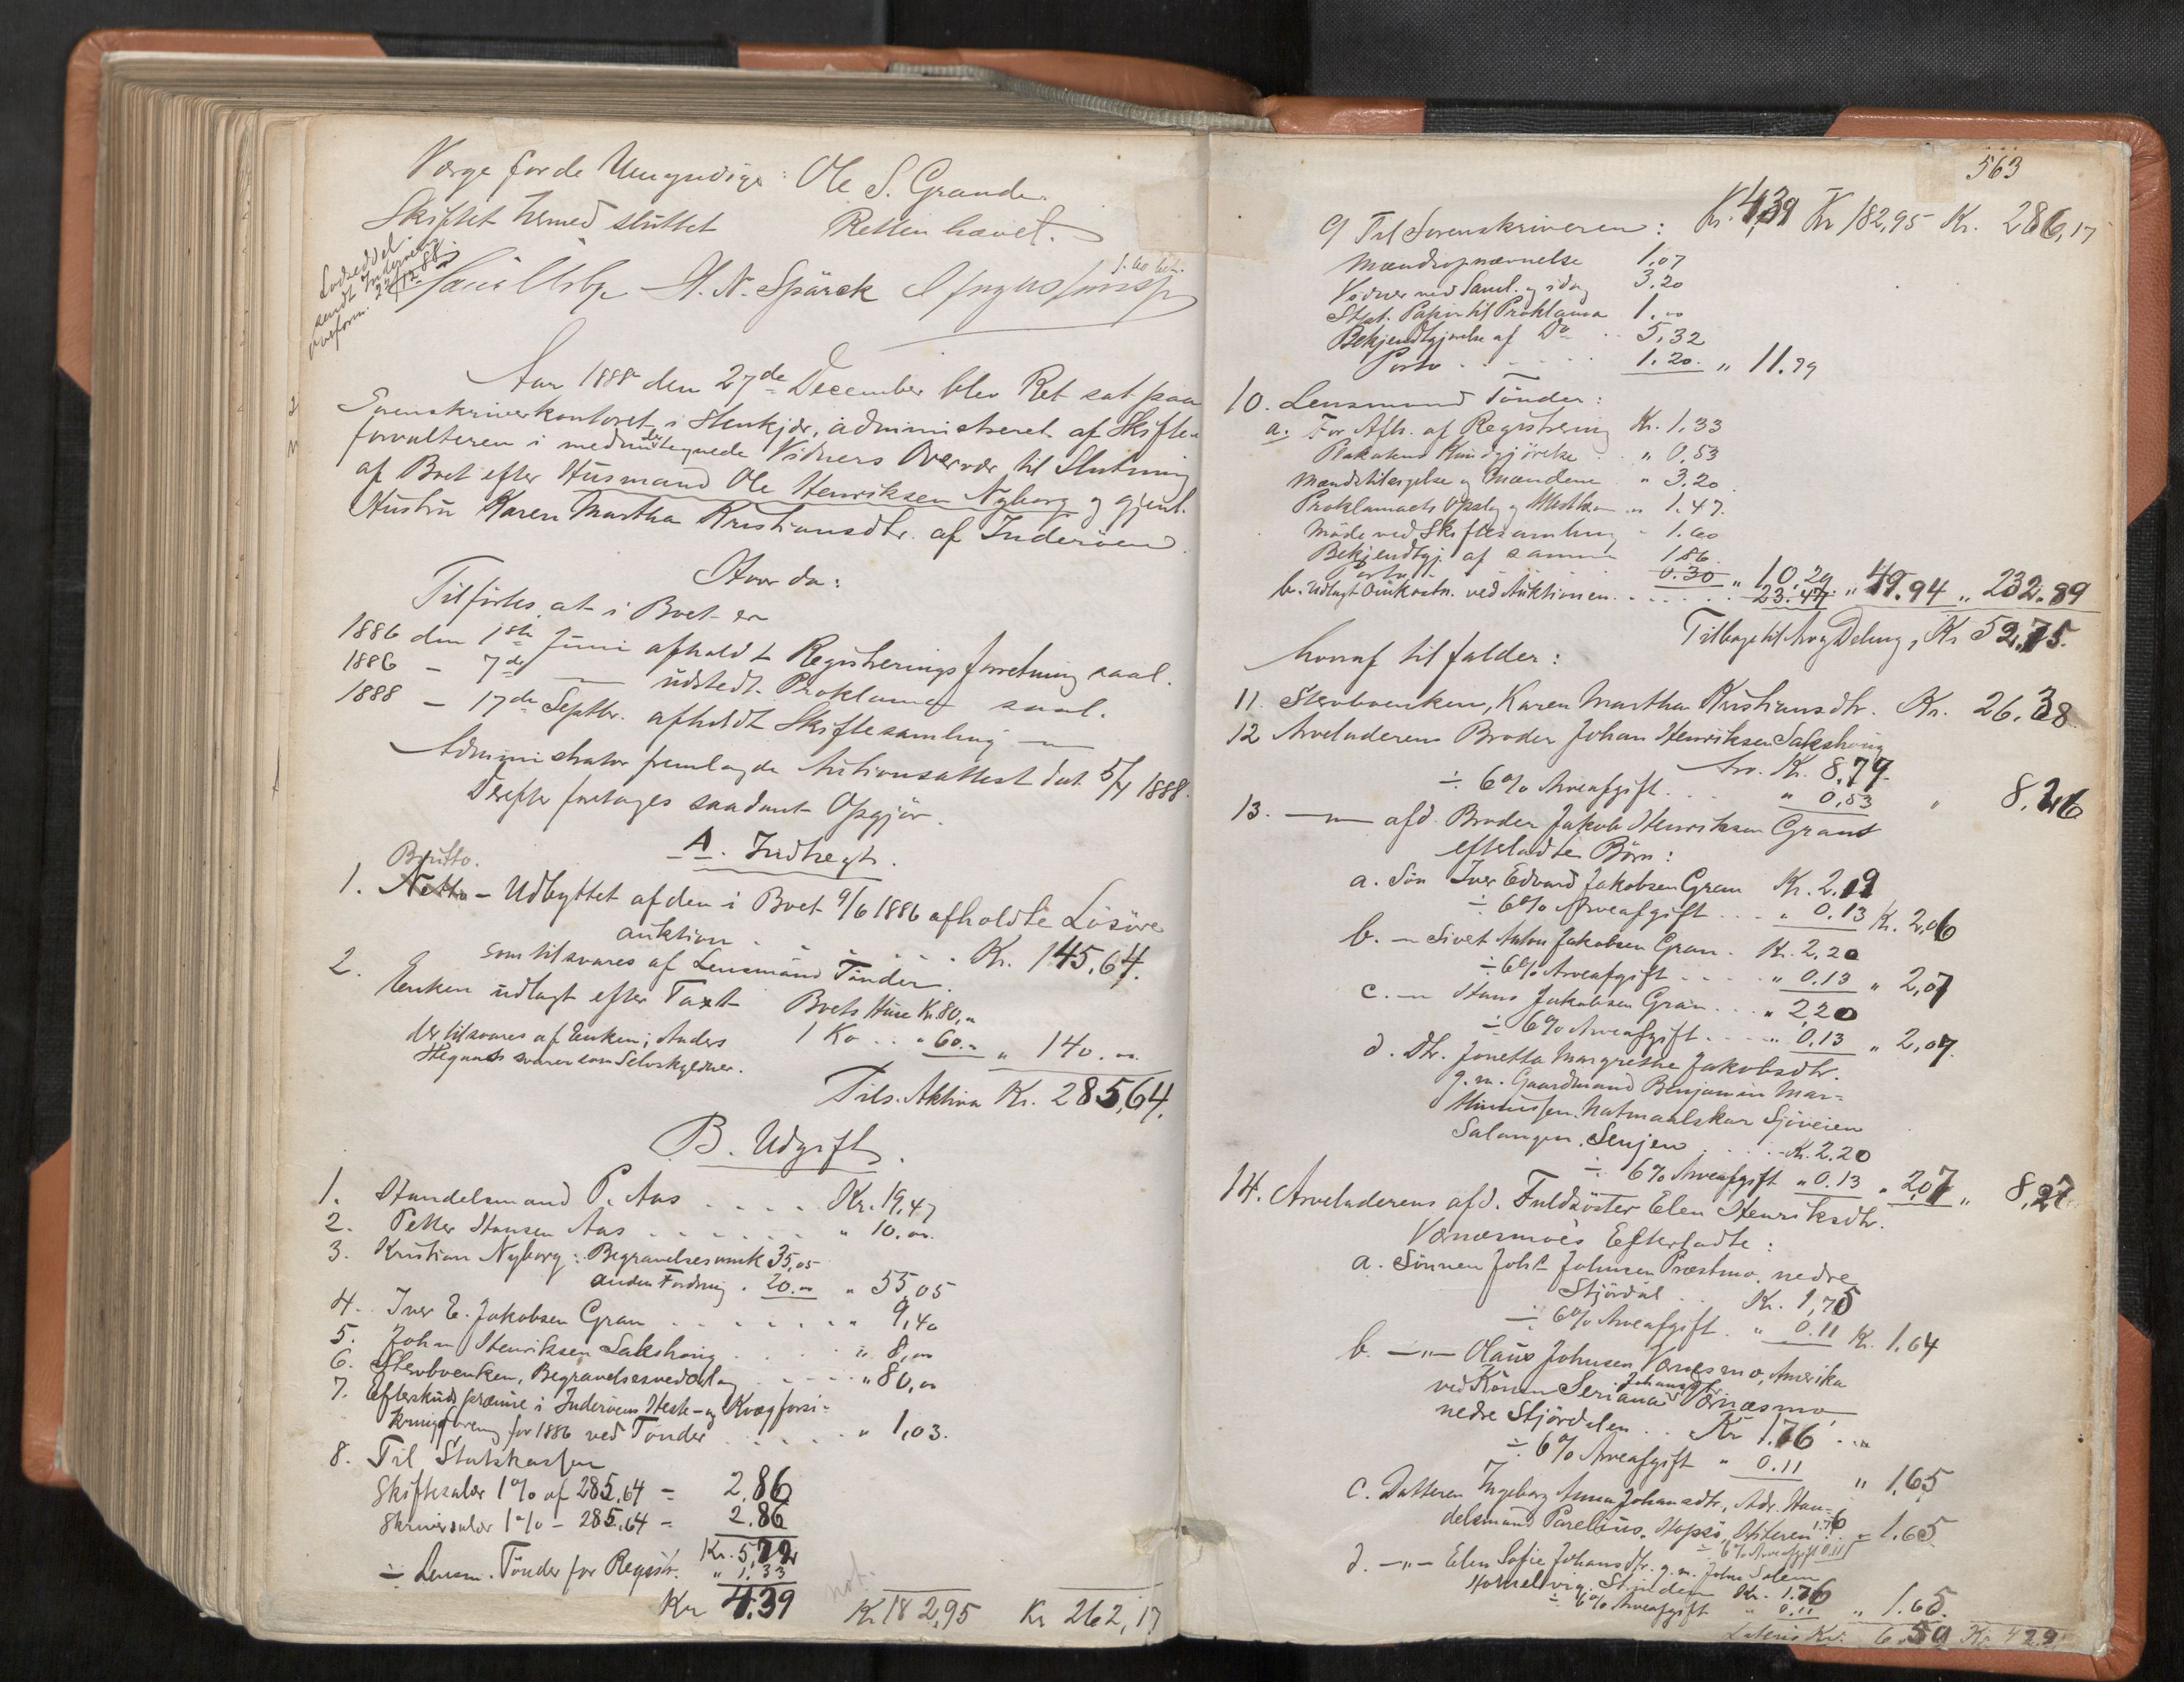 Værge for de Umyndige: Ole S. Grande.
Skiftet hermed sluttet Retten hævet.
Lodseddel
sendt Inderøens
22/12 88
H. N. Spärck
Aar 1888 den 27de December blev Ret sat paa
Sorenskriverkontoret i Stenkjær, administreret af Skifte-
forvalteren i medundertegnede Vidners Overvær til Slutning
af Boet efter Husmand Ole Henriksen Nyborg og gjenl.
Hustru Karen Martha Kristiansdtr. af Inderøen.
Hvor da:
Tilførtes at i Boet er
1886 den 1ste Juni afholdt Registreringsforretning saal.
1886 – 7de — udstedt Proklama saal.
1888 – 17de Septbr. afholdt Skiftesamling —
Administrator fremlagde Auktionsattest dat. 5/4 1888.
Derefter foretages saadant Opgjør.
A. Indtægt.
Brutto.
1. Netto – Udbyttet af den i Boet 9/6 1886 afholdte Løsøre
auktion . . . . Kr. 145,64.
som tilsvares af Lensmand Tønder.
2. Enken udlagt efter Taxt Boets Huse Kr. 80,"
1 Ko . . " 60." " 140.00
der tilsvares af Enken; Anders
Hegnads svarer som Selvskyldner.
Tils. Aktiva Kr. 285,64.
B. Udgift.
1. Handelsmand P. Aas . . . . Kr. 19,47
2. Petter Hansen Aas . . . . " 10.00
3. Kristian Nyborg: Begravelsesomk 35,05
anden Fordring . 20.00 " 55,05
4. Iver E. Jakobsen Gran . . . . " 9,40
5. Johan Henriksen Sakshoug . . . " 8,00
6. Sterboenken, Begravelsesvederlag . . . " 80,00
7. Efterskudspræmie i Inderøens Heste- og Kvægforsi-
kringsforening for 1886 ved Tønder . . . . " 1,03.
8. Til Statskassen
Skiftesalær 1% af 285,64 = 2,86
Skriversalær 1% – 285,64 = 2.86
Kr. 5,72
÷ Lensm. Tønder for Registr. " 1,33
Kr 4.39 Kr 182,95 Kr 262,17
563
Kr. 4,39 Kr 182,95 Kr. 286,17
9 Til Sorenskriveren:
Mændsopnævnelse 1,07
Vidner ved Saml. og idag 3.20
Stpl. Papir til Proklama 1.00
Bekjendtgjørelse af Do . . 5,32
Porto . . . . 1.20. " 11.79
10. Lensmand Tønder:
a. For Afh. af Registrering Kr. 1,33
Plakatens Kundgjørelse . . " 0,53
Mændstilsigelse og Mændene " 3.20
Proklamaets Opslag og Attestation " 1.47.
Møde ved Skiftesamling " 1.60
Bekjendtgj. af samme 1.86
Porto 0.30 " 10.29
b. Udlagt Omkostn. ved Auktionen . . . . 23.47 " 49.94 " 232.89
Tilbage til Arv og Deling, Kr 52,75.
hvoraf tilfalder:
11. Sterboenken, Karen Martha Kristiansdtr. Kr. 26.38
12 Arveladerens Broder Johan Henriksen Sakshoug
Arv. Kr. 8,79.
÷ 6% Arveafgift . . " 0,53 " 8,26
13. —"— afd. Broder Jakob Henriksen Grans
efterladte Børn:
a. Søn Iver Edvard Jakobsen Gran Kr. 2.19
÷ 6% Arveafgift . . . " 0.13 Kr. 2,06
b. –"– Sivert Anton Jakobsen Gran . Kr. 2.20
÷ 6% Arveafgift . . . . " 0.13 " 2,07
c. –"– Hans Jakobsen Gran . . . " 2,20
÷ 6% Arveafgift . . . . " 0.13 " 2,07.
d. Dtr. Jonetta Margrethe Jakobsdtr.
g. m. Gaardmand Benjamin Mar-
thinussen Natmaalskar Sjøveien
Salangen, Senjen . . . . Kr. 2.20
÷ 6% Arveafgift " 0.13 " 2,07 " 8,27
14. Arveladerens afd. Fuldsøster Elen Henriksdtr.
Værnæsmoes Efterladte:
a. Sønnen Johs Johnsen Præstmo, nedre
Stjørdal . . Kr. 1,75
÷ 6% Arveafgift . " 0.11 Kr. 1,64
b. —"— Olaus Johnsen Værnesmo, Amerika
ved Konen Seriana Johansdtr. Værnæsmo,
nedre Stjørdalen . . Kr 1.76
÷ 6% Arveafgift " 0.11 " 1,65
c. Datteren Ingeborg Anna Johansdtr., Adr. Han-
delsmand Parelius, Hopsø, Hiteren 1.76
÷ 6% Arveafgift 0.11 " 1.65.
d. —"— Elen Sofie Johansdtr. g. m. Johan Solem
Hommelvig, Strinden Kr. 1.76
÷ 6% Arveafgift " 0.11 " 1.65.
Lateris Kr. 6.59 Kr 42.91